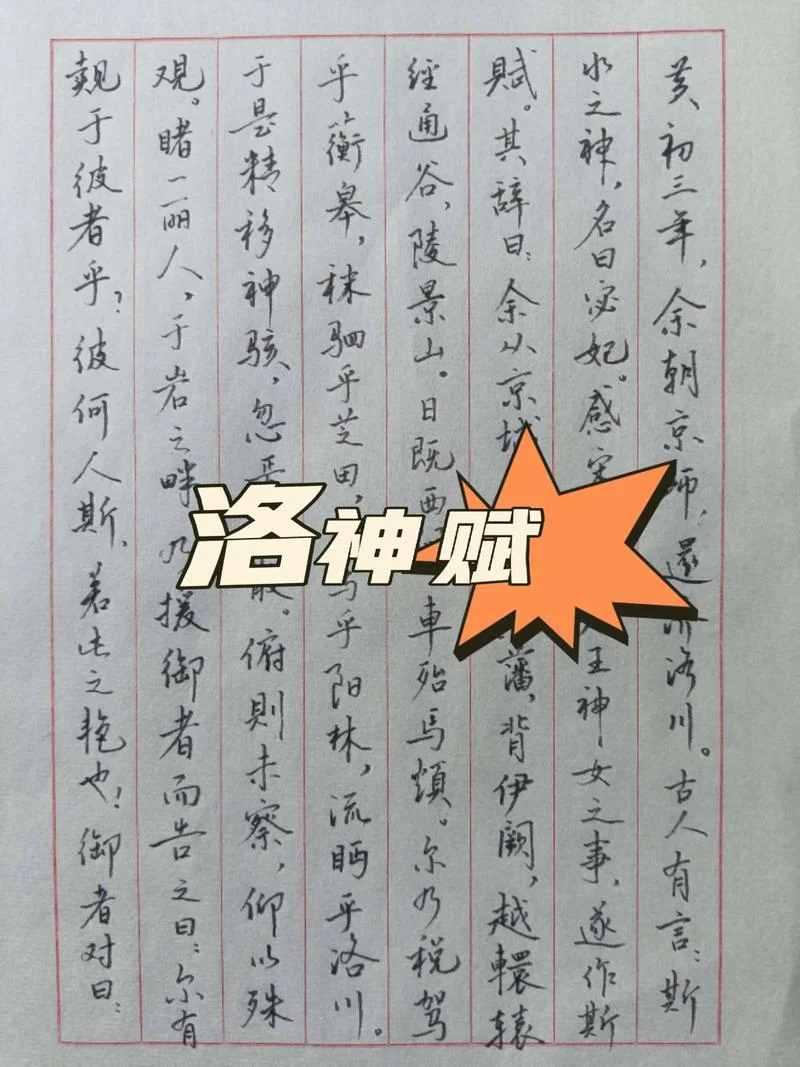 黄初三年，余朝京师，還济洛川。古人有言：斯
水之神，名曰宓妃。感宋王神女之事，遂作斯
赋。其辞曰：余从京域藩，背伊阙，越轘辕
經通谷，陵景山。日既西車殆馬煩。尔乃税驾
乎蘅皋，秣驷乎芝田，与乎阳林，流眄乎洛川。
于是精移神骇，忽焉散。俯則未察，仰以殊
观。睹一丽人，于岩之畔乃援御者而告之曰：尔有
觌于彼者乎？彼何人斯，若此之艳也！御者对曰：
洛神赋